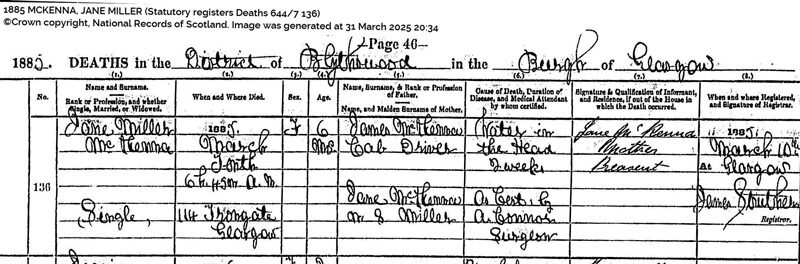 1885 MCKENNA, JANE MILLER (Statutory registers Deaths 644/7 136)
©Crown copyright, National Records of Scotland. Image was generated at 31 March 2025 20:34
—Page 46—
1885. DEATHS in the District of Blythswood in the Burgh of Glasgow
(1.) (2.) (3.) (4.) (5.) (6.) (7.) (8.)
No.
Name and Surname.
Rank or Profession, and whether Single, Married, or Widowed.
When and Where Died.
Sex.
Age.
Name, Surname, & Rank or Profession of Father.
Name, and Maiden Surname of Mother.
Cause of Death, Duration of Disease, and Medical Attendant by whom certified.
Signature & Qualification of Informant, and Residence, if out of the House in which the Death occurred.
When and where Registered, and Signature of Registrar.
136
Jane Miller
McKenna
Single
1885.
March
Tenth
6 h. 45 m. A.M.
114 Trongate
Glasgow
F
6
Mo
James McKenna
Cab Driver
Jane McKenna
m S Miller
Water in
the Head
2 weeks
As Cert. by
A Connor
Surgeon
Jane McKenna
Mother
Present
1885.
March 10th
At Glasgow
James Struthers
Registrar.